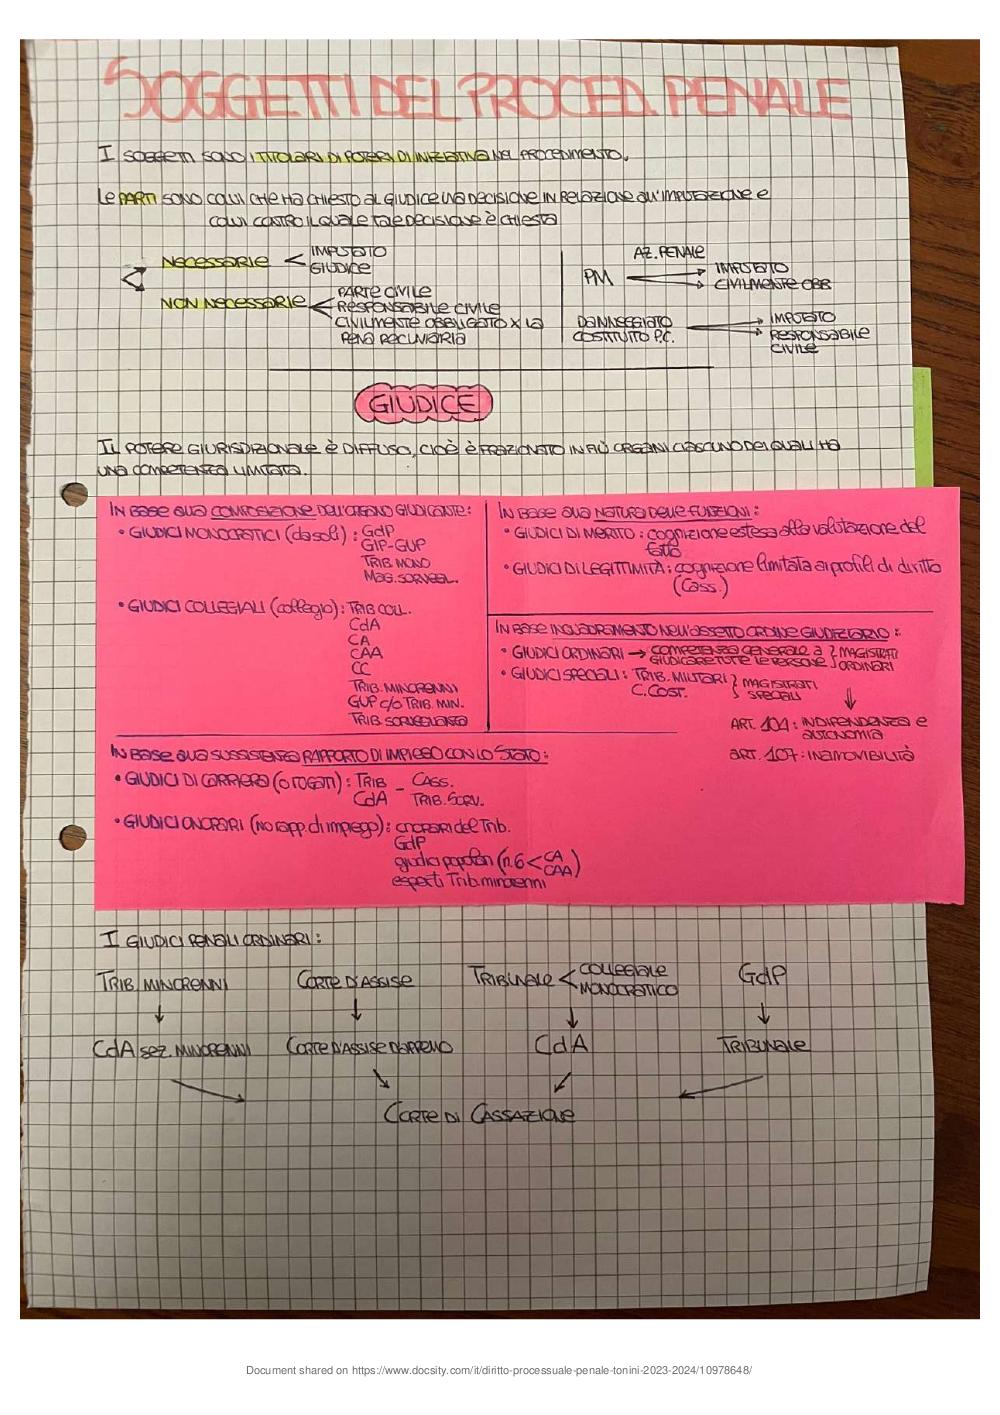 SOGGETTI DEL PROCED. PENALE
I SOGGETTI SONO I TITOLARI DI POTERI DI INIZIATIVA NEL PROCEDIMENTO.
Le PARTI SONO COLUI CHE HA CHIESTO AL GIUDICE UNA DECISIONE IN RELAZIONE ALL'IMPUTAZIONE E
COLUI CONTRO IL QUALE TALE DECISIONE È CHIESTA
NECESSARIE < IMPUTATO
GIUDICE
NON NECESSARIE < PARTE CIVILE
RESPONSABILE CIVILE
CIVILMENTE OBBLIGATO X LA
PENA PECUNIARIA
AZ. PENALE
PM → IMPUTATO
→ CIVILMENTE OBB
DANNEGGIATO → IMPUTATO
COSTITUITO P.C. → RESPONSABILE
CIVILE
GIUDICE
IL POTERE GIURISDIZIONALE È DIFFUSO, CIOÈ È FRAZIONATO IN PIÙ ORGANI CIASCUNO DEI QUALI HA
UNA COMPETENZA LIMITATA.
IN BASE ALLA COMPOSIZIONE DELL'ORGANO GIUDICANTE:
• GIUDICI MONOCRATICI (da soli): GdP
GIP-GUP
TRIB. MONO
MAG. SORVEGL.
• GIUDICI COLLEGIALI (collegio): TRIB COLL.
CdA
CA
CAA
CC
TRIB. MINORENNI
GUP c/o TRIB. MIN.
TRIB SORVEGLIANZA
IN BASE ALLA NATURA DELLE FUNZIONI:
• GIUDICI DI MERITO: cognizione estesa alla valutazione del
fatto
• GIUDICI DI LEGITTIMITÀ: cognizione limitata ai profili di diritto
(Cass.)
IN BASE INQUADRAMENTO NELL'ASSETTO ORDINE GIUDIZIARIO:
• GIUDICI ORDINARI → COMPETENZA GENERALE A } MAGISTRATI
GIUDICARE TUTTE LE PERSONE } ORDINARI
• GIUDICI SPECIALI: TRIB. MILITARI } MAGISTRATI
C. COST. } SPECIALI
ART. 104: INDIPENDENZA E
AUTONOMIA
ART. 107: INAMOVIBILITÀ
IN BASE ALLA SUSSISTENZA RAPPORTO DI IMPIEGO CON LO STATO:
• GIUDICI DI CARRIERA (O TOGATI): TRIB - CASS.
CdA TRIB. SORV.
• GIUDICI ONORARI (NO rapp. di impiego): onorari del Trib.
GdP
giudici popolari (n.6 < CA
CAA)
esperti Trib. minorenni
I GIUDICI PENALI ORDINARI:
TRIB. MINORENNI CORTE D'ASSISE TRIBUNALE < COLLEGIALE GdP
MONOCRATICO
CdA sez. MINORENNI CORTE D'ASSISE D'APPELLO CdA TRIBUNALE
CORTE DI CASSAZIONE
Document shared on https://www.docsity.com/it/diritto-processuale-penale-tonini-2023-2024/10978648/